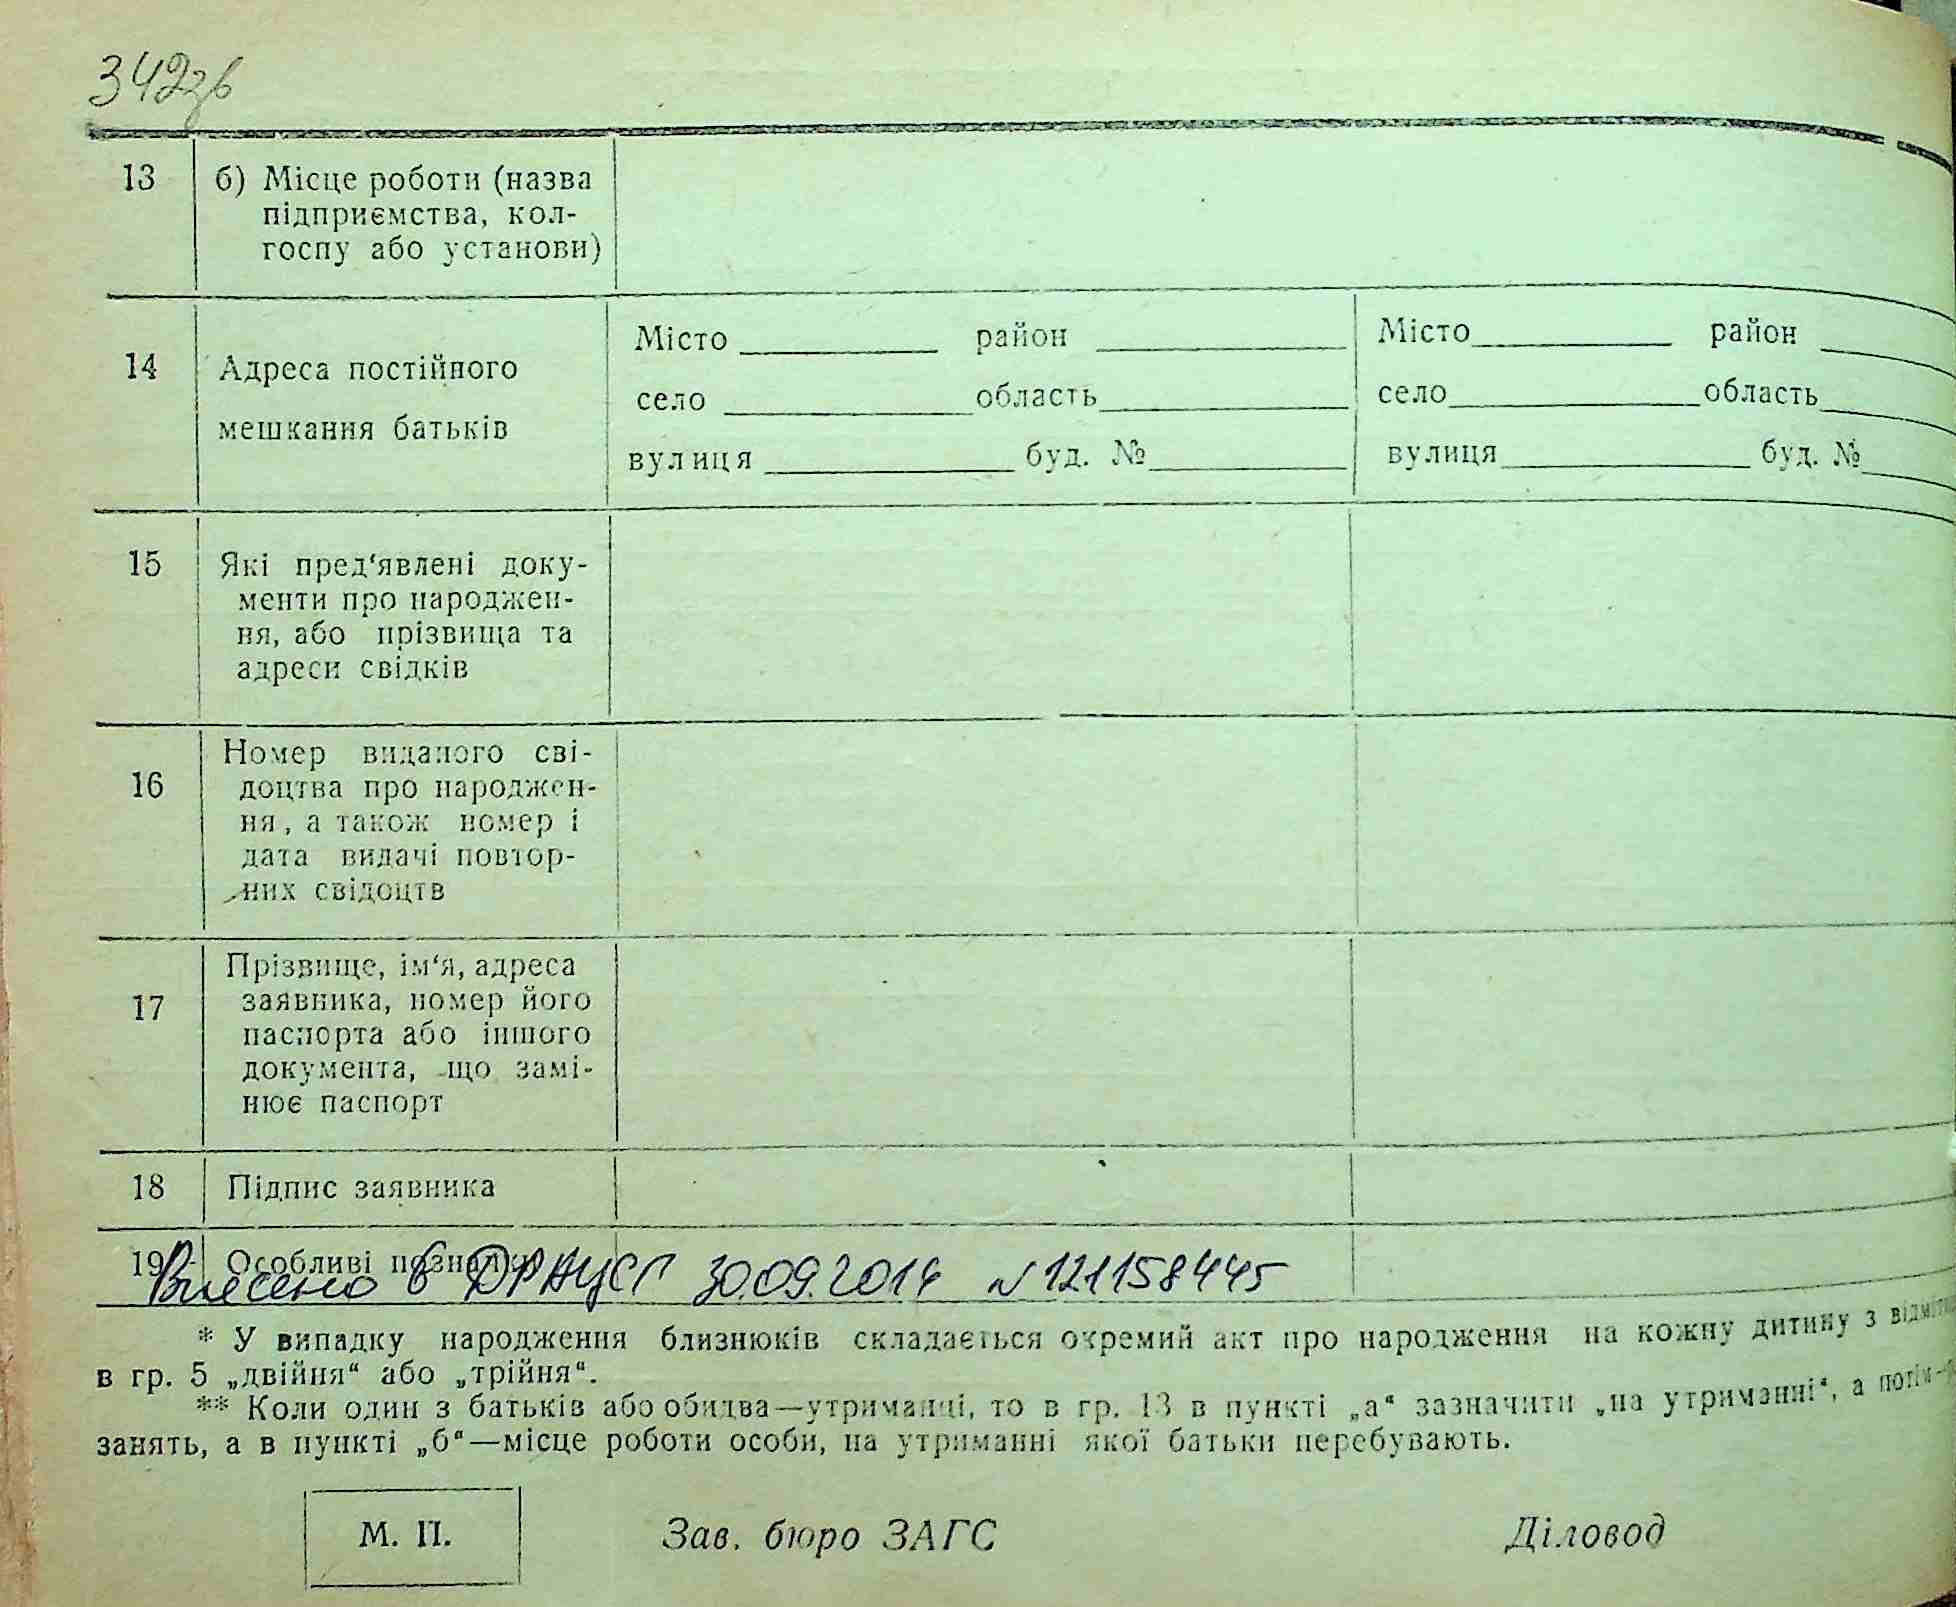 342зв
13 б) Місце роботи (назва
підприємства, кол-
госпу або установи)
14 Адреса постійного
мешкання батьків
Місто район
село область
вулиця буд. №
Місто район
село область
вулиця буд. №
15 Які пред‘явлені доку-
менти про народжен-
ня, або прізвища та
адреси свідків
16 Номер виданого сві-
доцтва про народжен-
ня, а також номер і
дата видачі повтор-
них свідоцтв
17 Прізвище, ім‘я, адреса
заявника, номер його
паспорта або іншого
документа, що замі-
нює паспорт
18 Підпис заявника
19 Особливі позначки
Внесено в ДРАЦСГ 30.09.2014 N 121158445
* У випадку народження близнюків складається окремий акт про народження на кожну дитину з
в гр. 5 „двійня“ або „трійня“.
** Коли один з батьків або обидва—утриманці, то в гр. 13 в пункті „а“ зазначити „на утриманні“, а потім—
занять, а в пункті „б“—місце роботи особи, на утриманні якої батьки перебувають.
М. П. Зав. бюро ЗАГС Діловод